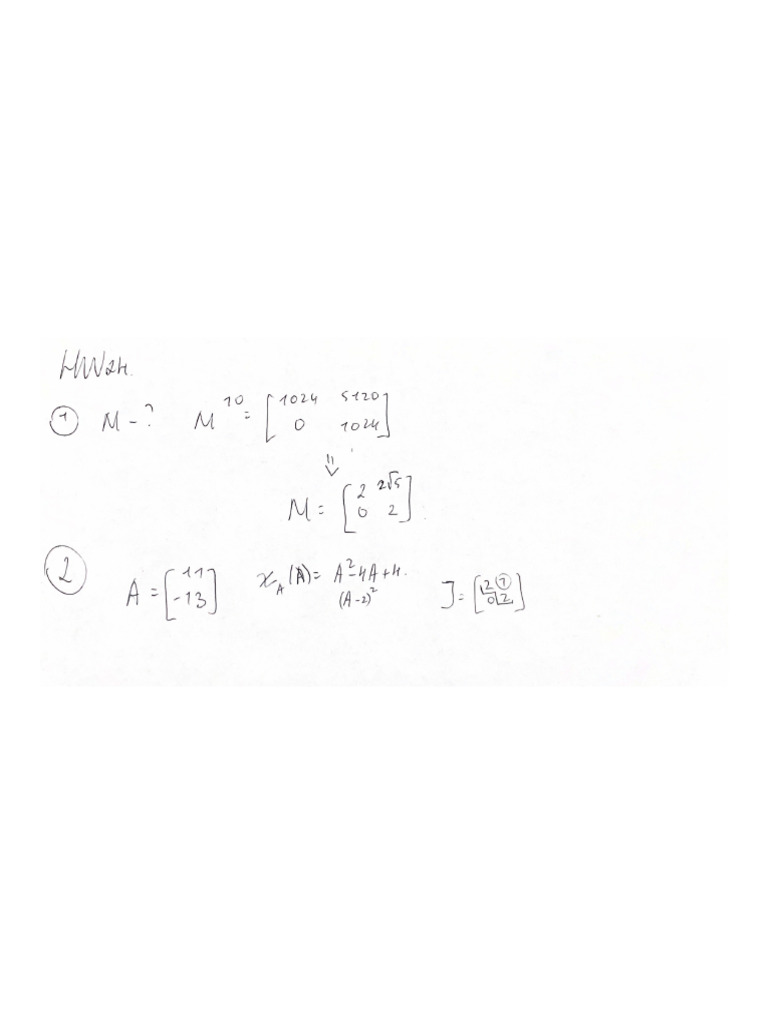 HW24.
① M-? M¹⁰ = [1024 5120
0 1024]
⇓
M = [2 2√5
0 2]
② A = [1 1
-1 3] χ_A(A) = A²-4A+4. J = [2 1
0 2]
(A-2)²